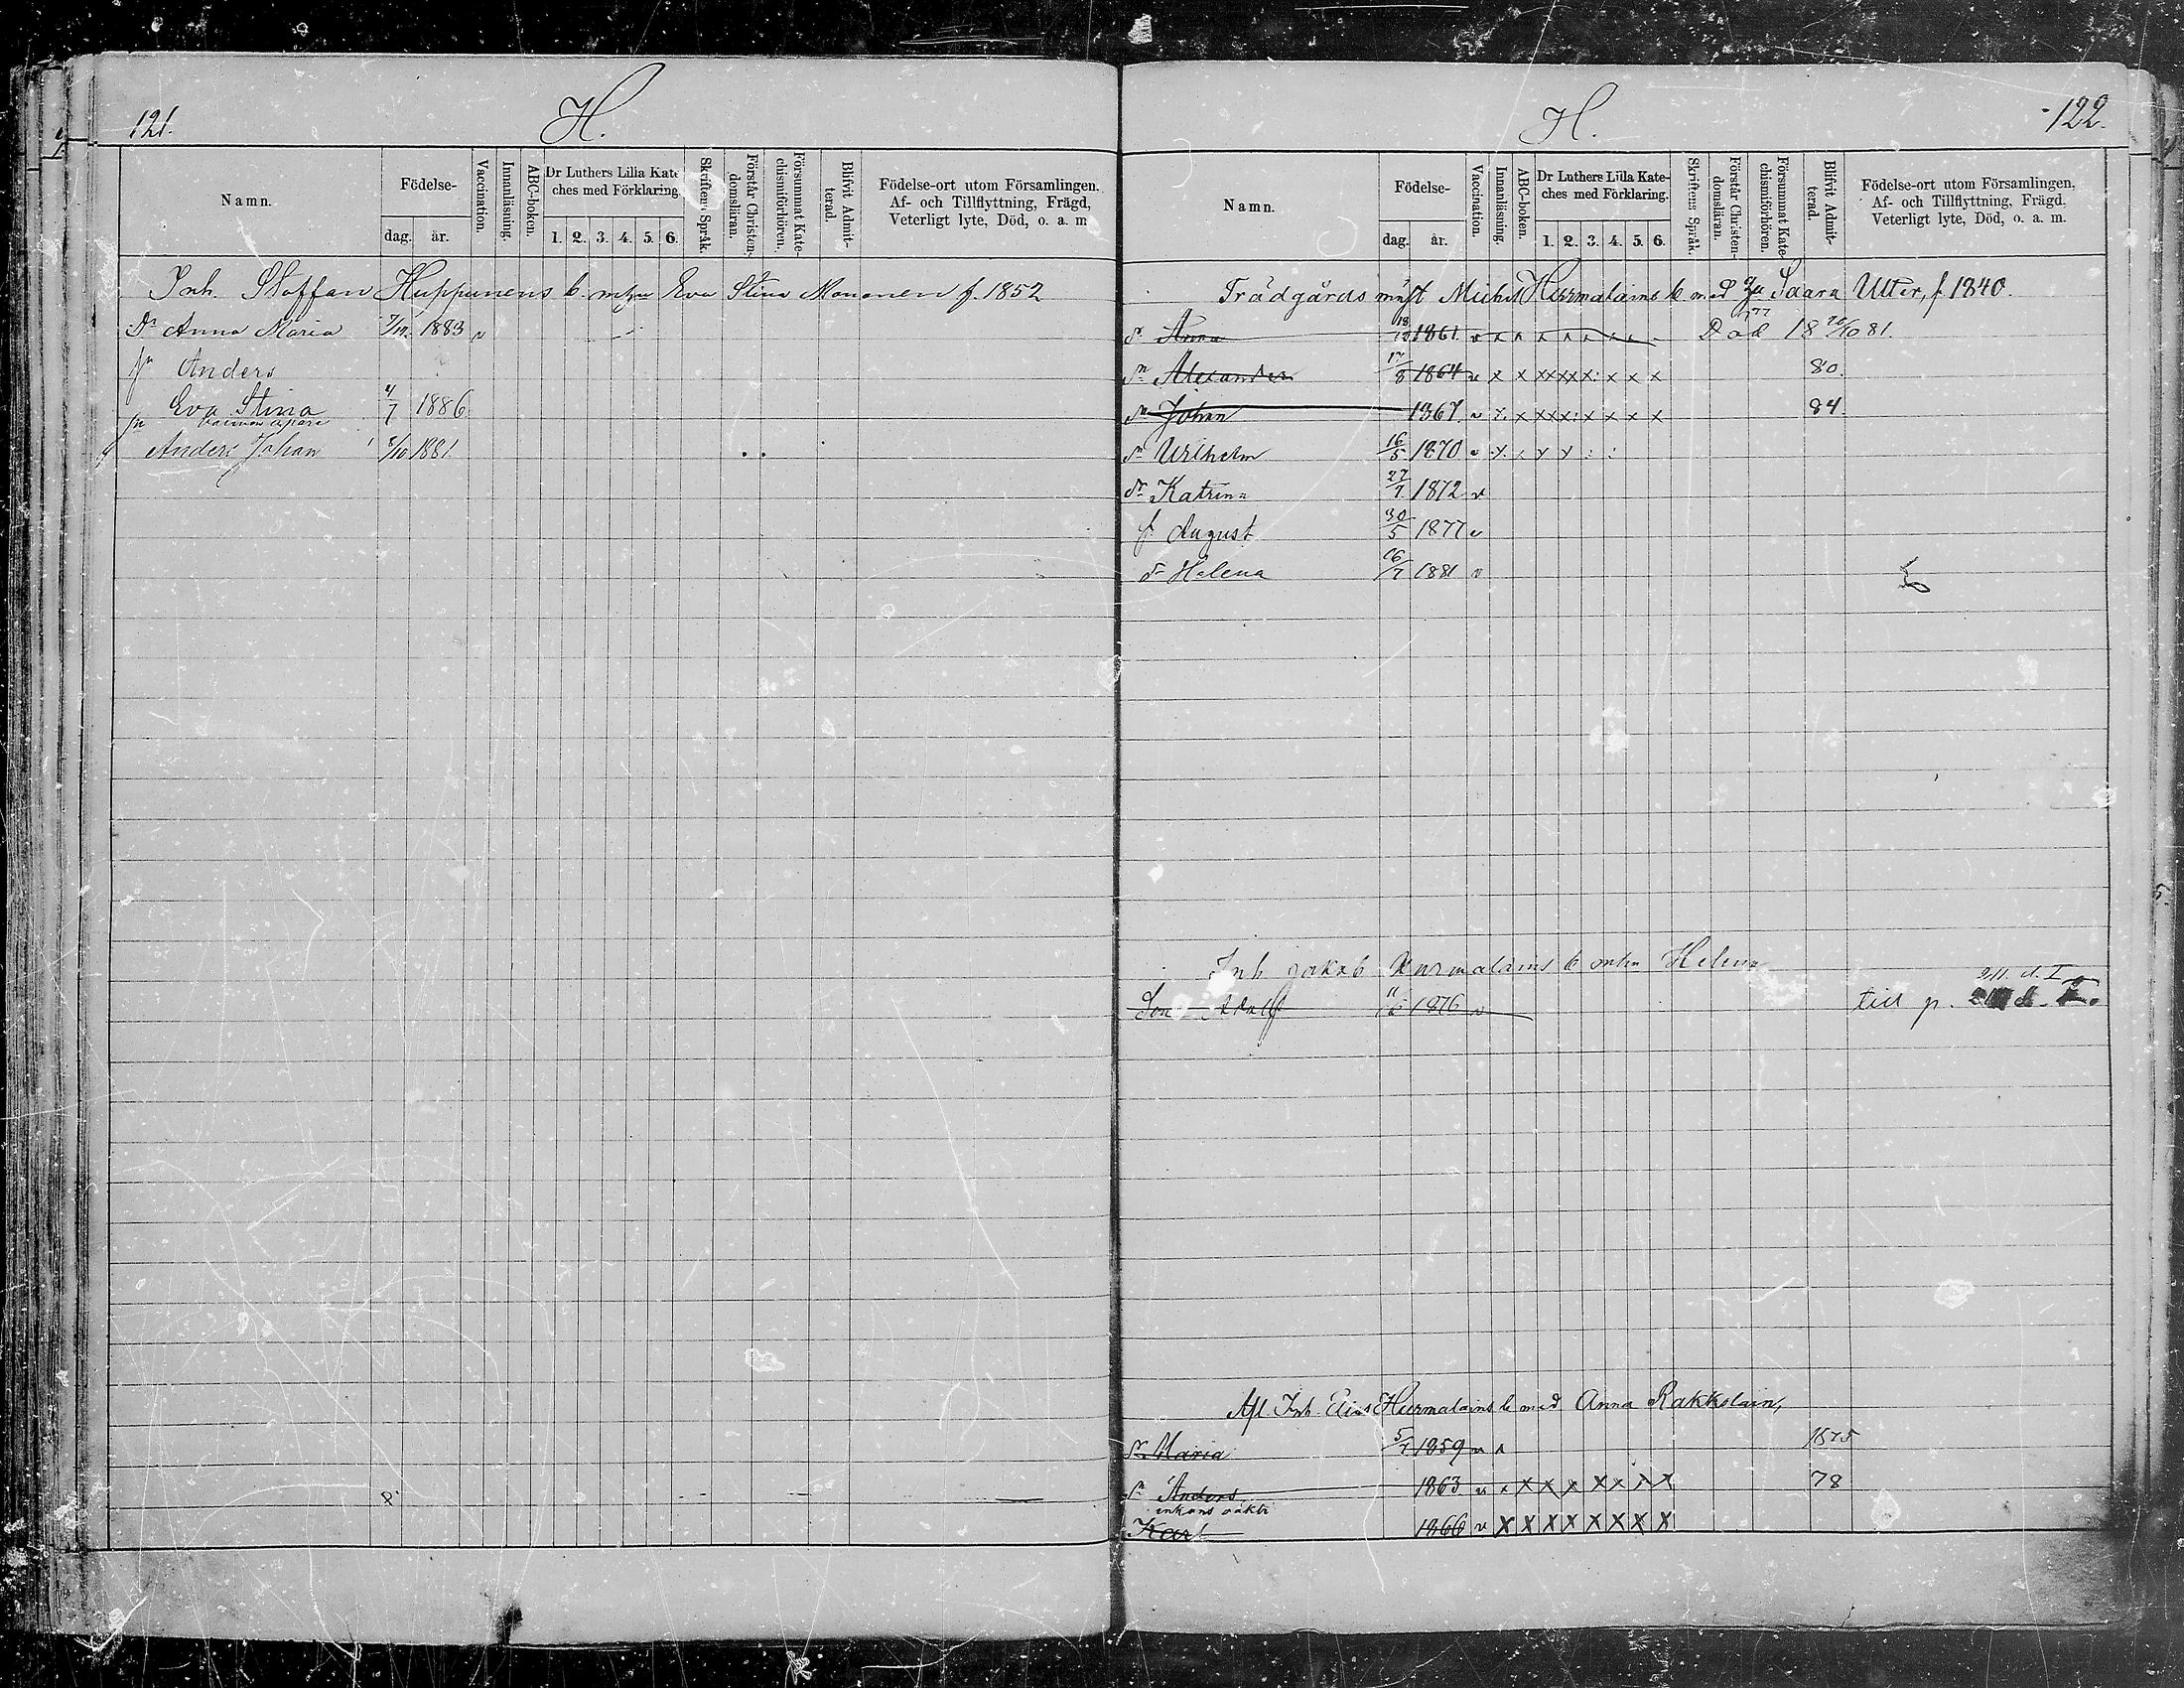 121.
H.
Namn.
Födelse-
dag.
år.
Vaccination.
Innanläsning.
ABC-boken.
Dr Luthers Lilla Kate-
ches med Förklaring.
1. 2. 3. 4. 5. 6.
Skriftens Språk.
Förstår Christen-
domsläran.
Försummat Kate-
chismiförhören.
Blifvit Admit-
terad.
Födelse-ort utom Församlingen,
Af- och Tillflyttning, Frägd,
Veterligt lyte, Död, o. a. m
Inh. Staffan Huppunens b. Eva Stina Mononen f. 1852
Dr Anna Maria 1883 v
Anders
Eva Stina 4/7 1886
Anders Johan 8/10 1881.
H.
122.
Namn.
Födelse-
dag.
år.
Vaccination.
Innanläsning.
ABC-boken.
Dr Luthers Lilla Kate-
ches med Förklaring.
1. 2. 3. 4. 5. 6.
Skriftens Språk.
Förstår Christen-
domsläran.
Försummat Kate-
chismiförhören.
Blifvit Admit-
terad.
Födelse-ort utom Församlingen,
Af- och Tillflyttning, Frägd,
Veterligt lyte, Död, o. a. m.
Trädgårds Michel Hurmalains b med Saara Utter, f 1840.
dr Anna 1861. v x x x x x x Död 81.
sn Alexander 17/8 1864 v x x x x x x x x x 80.
sn Johan 1867. v x x x x x x x x x 84
sn Wilhelm 16/5 1870 v x x x
dr Katrina 1872 v
August 30/5 1877 v
dr Helena 1881 v
Inh Jakob Hurmalains b Helena
211. d. I
Son Adolf 1876 v till p.
Afl Inh. Elias Hurmalains b med Anna Rakkolain,
dr Maria 1859 v x 1875
sn Anders 1863 v x x x x x x x x 78
enkans
Karl 1866 v x x x x x x x x